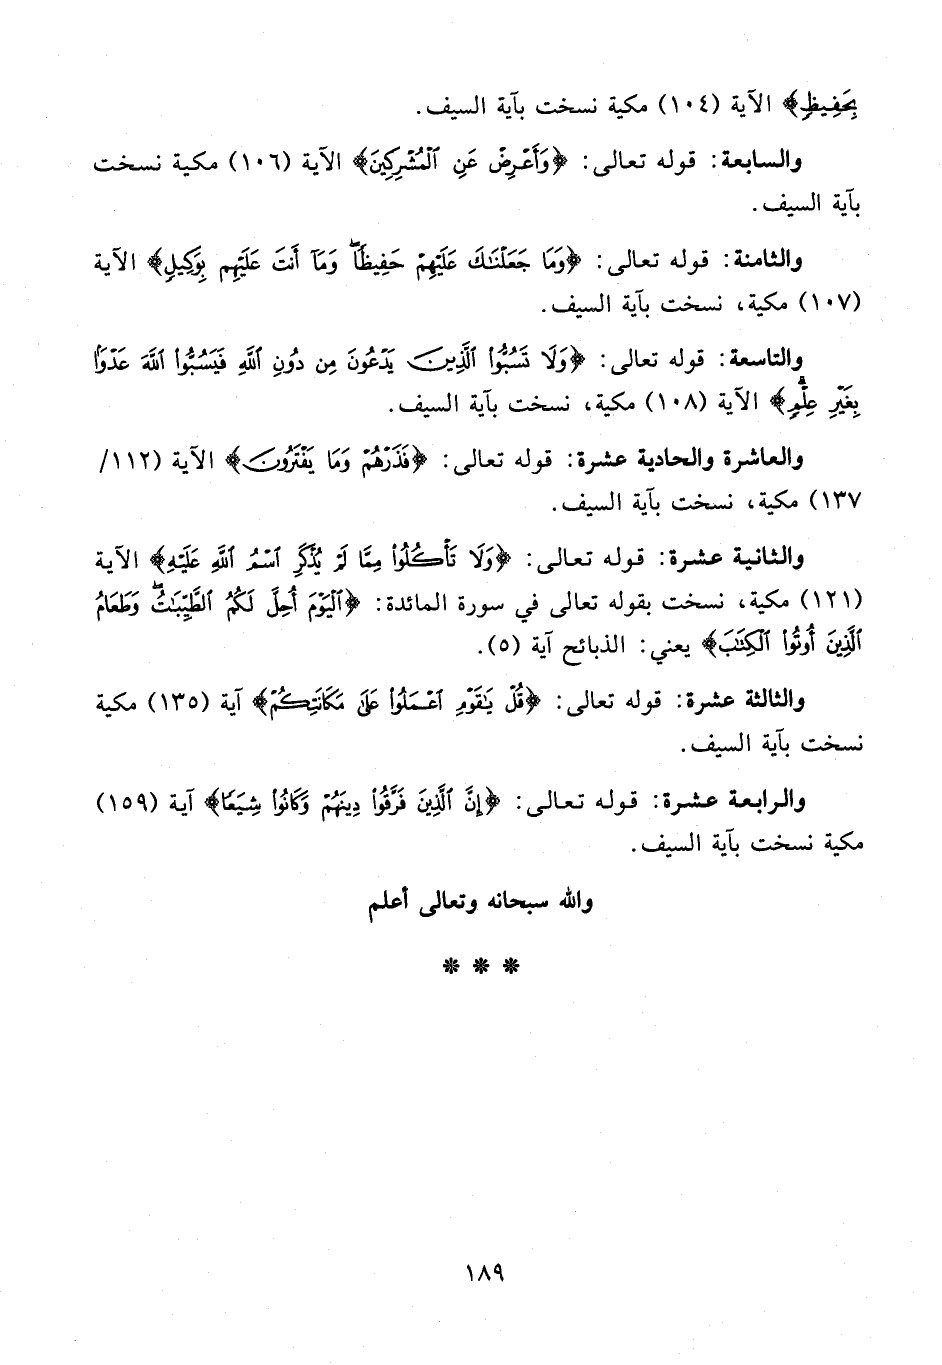 بِحَفِيظٍ﴾ الآية (١٠٤) مكية نسخت بآية السيف.
والسابعة: قوله تعالى: ﴿وَأَعْرِضْ عَنِ ٱلْمُشْرِكِينَ﴾ الآية (١٠٦) مكية نسخت
بآية السيف.
والثامنة: قوله تعالى: ﴿وَمَا جَعَلْنَٰكَ عَلَيْهِمْ حَفِيظًاۖ وَمَآ أَنتَ عَلَيْهِم بِوَكِيلٍ﴾ الآية
(١٠٧) مكية، نسخت بآية السيف.
والتاسعة: قوله تعالى: ﴿وَلَا تَسُبُّوا۟ ٱلَّذِينَ يَدْعُونَ مِن دُونِ ٱللَّهِ فَيَسُبُّوا۟ ٱللَّهَ عَدْوًۢا
بِغَيْرِ عِلْمٍۗ﴾ الآية (١٠٨) مكية، نسخت بآية السيف.
والعاشرة والحادية عشرة: قوله تعالى: ﴿فَذَرْهُمْ وَمَا يَفْتَرُونَ﴾ الآية (١١٢/
١٣٧) مكية، نسخت بآية السيف.
والثانية عشرة: قوله تعالى: ﴿وَلَا تَأْكُلُوا۟ مِمَّا لَمْ يُذْكَرِ ٱسْمُ ٱللَّهِ عَلَيْهِ﴾ الآية
(١٢١) مكية، نسخت بقوله تعالى في سورة المائدة: ﴿ٱلْيَوْمَ أُحِلَّ لَكُمُ ٱلطَّيِّبَٰتُۖ وَطَعَامُ
ٱلَّذِينَ أُوتُوا۟ ٱلْكِتَٰبَ﴾ يعني: الذبائح آية (٥).
والثالثة عشرة: قوله تعالى: ﴿قُلْ يَٰقَوْمِ ٱعْمَلُوا۟ عَلَىٰ مَكَانَتِكُمْ﴾ آية (١٣٥) مكية
نسخت بآية السيف.
والرابعة عشرة: قوله تعالى: ﴿إِنَّ ٱلَّذِينَ فَرَّقُوا۟ دِينَهُمْ وَكَانُوا۟ شِيَعًا﴾ آية (١٥٩)
مكية نسخت بآية السيف.
والله سبحانه وتعالى أعلم
* * *
١٨٩